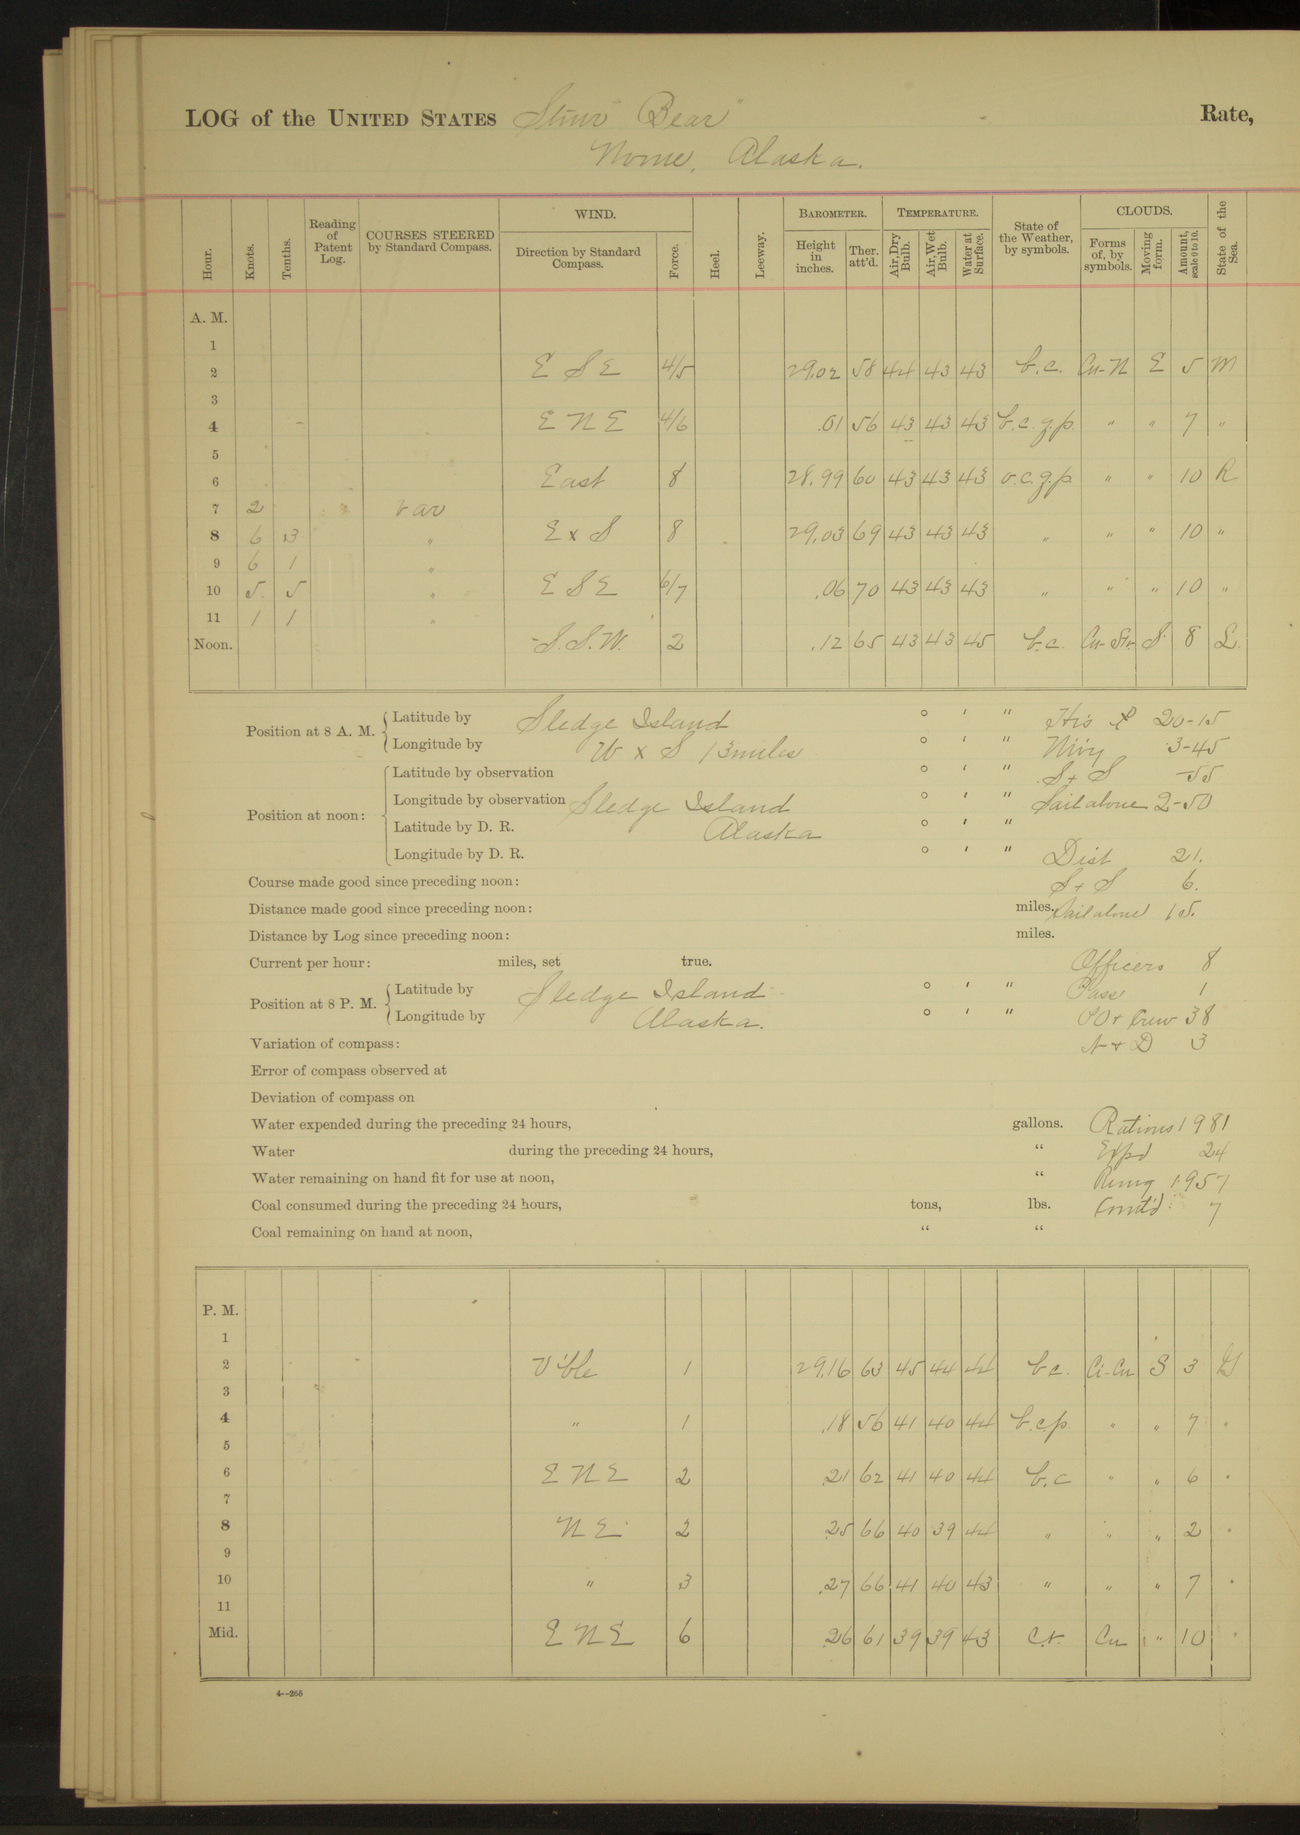 LOG of the UNITED STATES Stmr "Bear" Rate,
Nome, Alaska.
Hour. Knots. Tenths. Reading of Patent Log. COURSES STEERED by Standard Compass. WIND. Direction by Standard Compass. Force. Heel. Leeway. BAROMETER. Height in inches. Ther. att'd. TEMPERATURE. Air, Dry Bulb. Air, Wet Bulb. Water at Surface. State of the Weather, by symbols. CLOUDS. Forms of, by symbols. Moving form. Amount, scale 0 to 10. State of the Sea.
A. M.
1
2 E S E 4/5 29.02 58 44 43 43 b.c. Cu-N E 5 M
3
4 E N E 4/6 .01 56 43 43 43 b.c.q.p. " " 7 "
5
6 East 8 28.99 60 43 43 43 o.c.q.p. " " 10 R
7 2 var
8 6 .3 " E x S 8 29.03 69 43 43 43 " " " 10 "
9 6 1 "
10 5. 5 " E S E 6/7 .06 70 43 43 43 " " " 10 "
11 1 1 "
Noon. S.S.W. 2 .12 65 43 43 45 b.c. Cu-Str. S. 8 L.
Position at 8 A. M. Latitude by Sledge Island ° ' " Hrs 20-15
Longitude by W x S 13 miles ° ' " 3-45
Position at noon: Latitude by observation ° ' " S + S -55
Longitude by observation Sledge Island ° ' " Sail alone 2-50
Latitude by D. R. Alaska ° ' "
Longitude by D. R. ° ' " Dist 21.
Course made good since preceding noon: S + S 6.
Distance made good since preceding noon: miles. Sail alone 15.
Distance by Log since preceding noon: miles.
Current per hour: miles, set true. Officers 8
Position at 8 P. M. Latitude by Sledge Island ° ' " Pass 1
Longitude by Alaska. ° ' " PO + Crew 38
Variation of compass: N + D 3
Error of compass observed at
Deviation of compass on
Water expended during the preceding 24 hours, gallons. Rations 1981
Water during the preceding 24 hours, “ Expd 24
Water remaining on hand fit for use at noon, “ Remg 1957
Coal consumed during the preceding 24 hours, tons, lbs. Comt'd 7
Coal remaining on hand at noon, “ “
P. M.
1
2 V'ble 1 29.16 63 45 44 44 b c. Ci-Cu S 3
3
4 " 1 .18 56 41 40 44 b.c.p. " " 7 "
5
6 E N E 2 .21 62 41 40 44 b.c " " 6 "
7
8 N E 2 .25 66 40 39 44 " " " 2 "
9
10 " 3 .27 66 41 40 43 " " " 7 "
11
Mid. E N E 6 .26 61 39 39 43 c.r. Cu " 10 "
4--265